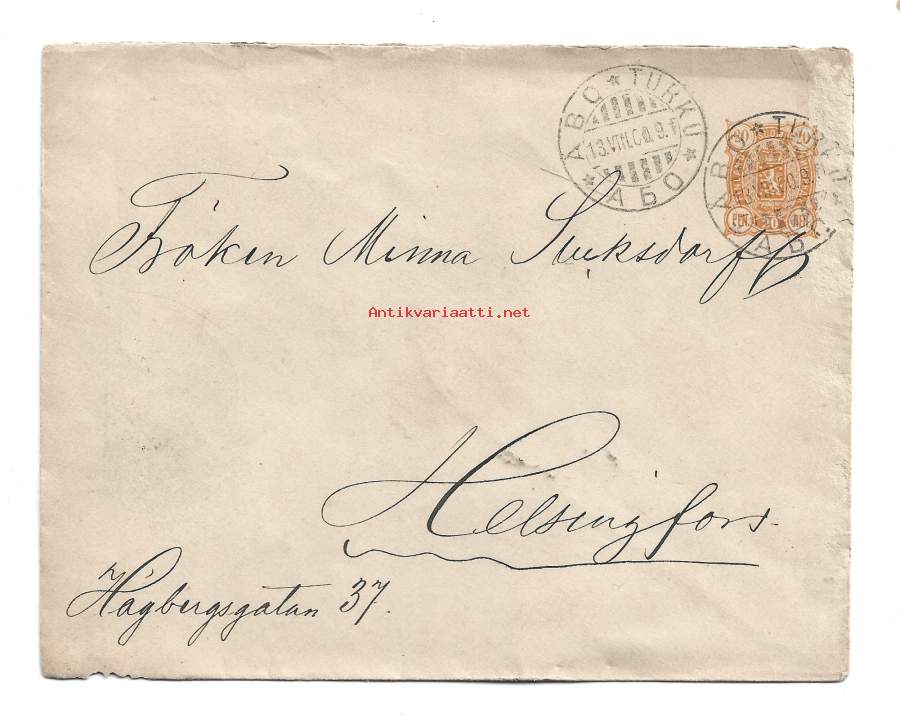 ABO * TURKU
13.VIII.00.9.f
* АБО *
Fröken Minna Sucksdorff
Antikvariaatti.net
Helsingfors.
Högbergsgatan 37.